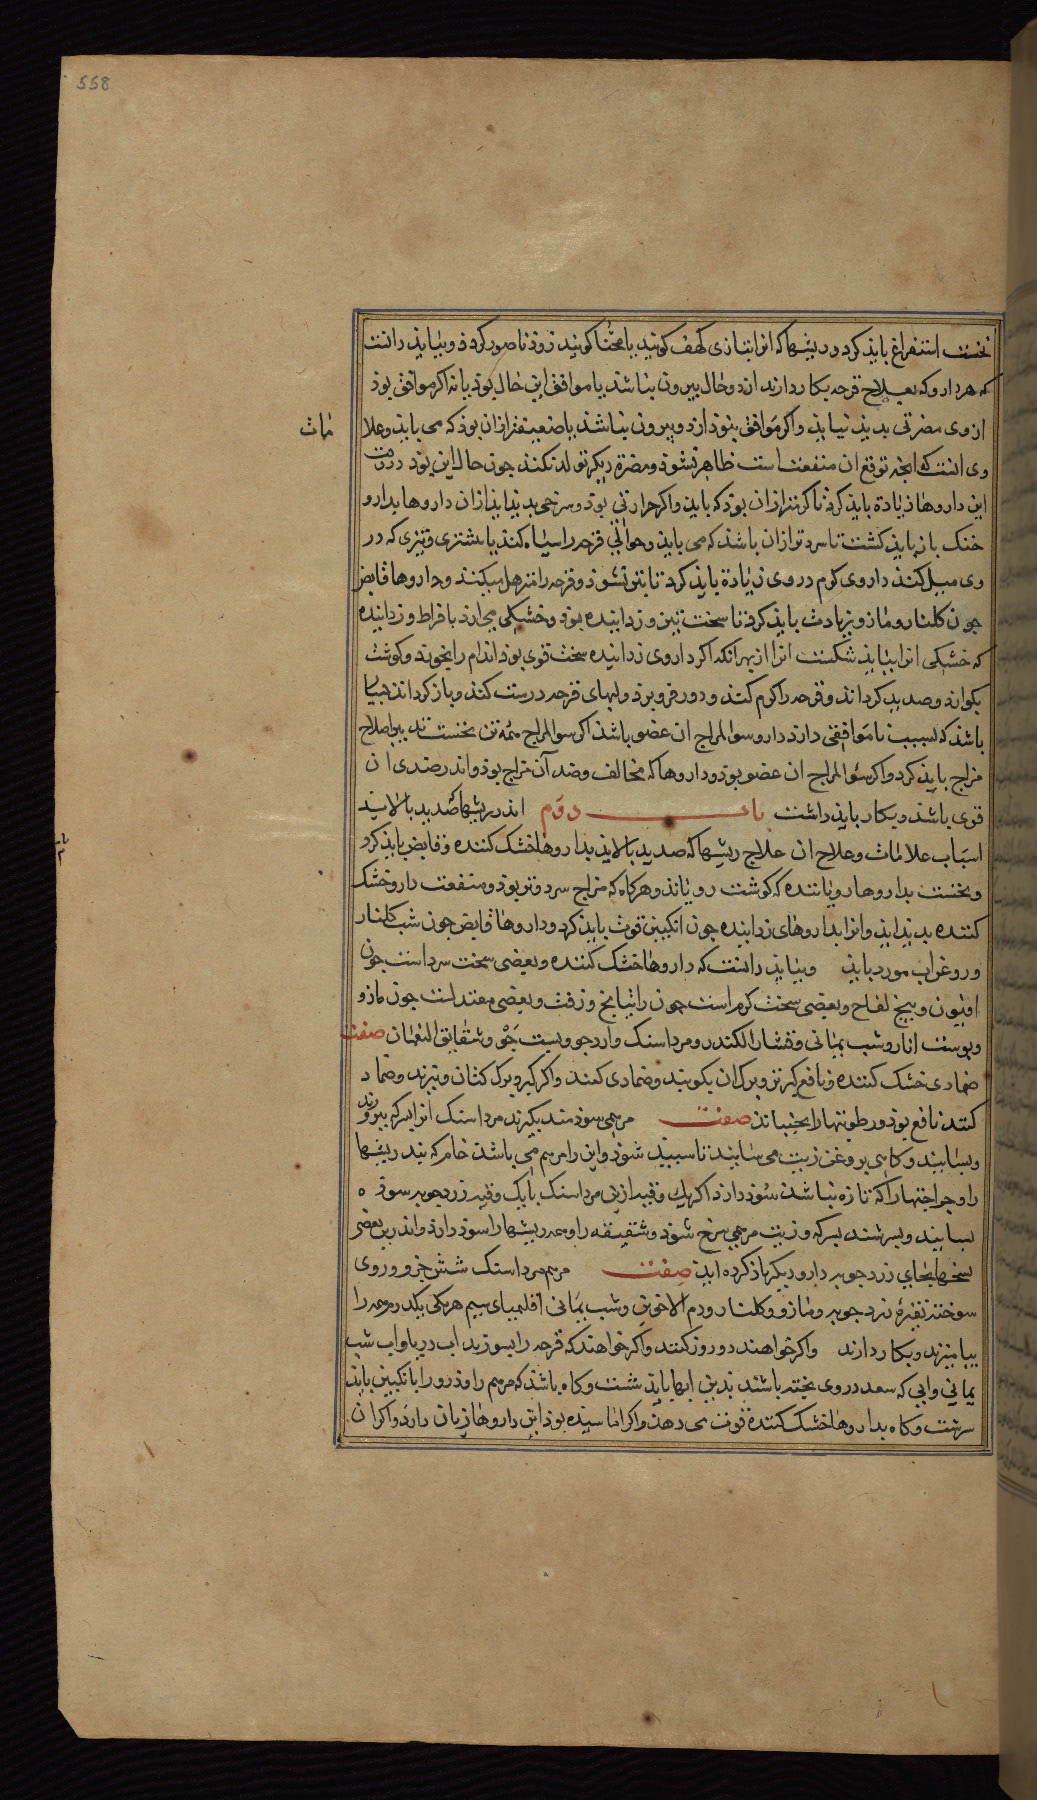 558
نخست استفراغ بایذ کرد و ریشها که انرا بتازی کهف کویند یا مخبا کویند زوذ ناصور کردذ و ببایذ دانست
که هر دارو که بعلاج قرحه بکار دارند از دو حال بیرون نباشذ یا موافق این حال بوذ یا نه اکر موافق بوذ
از وی مضرتی بدیذ نیایذ واکر موافق نبوذ از دو بیرون نباشذ یا ضعیفتر از ان بوذ که می بایذ وعلا
مات
وی انست که انجه توقع ان منفعت است ظاهر نشوذ ومضرة دیکر تولد نکند جون حال این بوذ
این داروها زیادة بایذ کرد تا کرمتر از ان بوذ که بایذ واکر حرارتی بوذ وسرخی بدیذ ایذ از ان داروها بدارو
خنک باز بایذ کشت تا سردتر از ان باشذ که می بایذ وحوالی قرحه را سیاه کند یا بسبزی وتیرکی که در
وی میل کند داروی کرم در وی زیادة بایذ کرد تا بتر نشوذ وقرحه را مترهل میکند وداروها قابض
جون کلنار ومازو زیادت بایذ کرد تا سخت تیز وزداینده بوذ وخشکی می ارذ بافراط وزداینده
که خشکی انرا ببایذ شکست انرا از بهر انکه اکر داروی زداینده سخت قوی بوذ اندام را بخورد وکوشت
بکدازد وصدید کرداند وقرحه را کرم کند ودور فرو برذ ولبهای قرحه درست کند وباز کرداند
باشذ که بسبب ناموافقی دارد دارو سوالمزاج ان عضو باشذ اکر سوالمزاج همه تن نخست تدبیر اصلاح
مزاج بایذ کرد واکر سوالمزاج ان عضو بوذ وداروها که مخالف وضد آن مزاج بوذ واندر ضدی ان
قوی باشذ وبکار بایذ داشت باب دوم اندر ریشها که صدید بالاید
اسباب علامات وعلاج ان علاج ریشها که صدید بالاید بداروها خشک کننده وقابض بایذ کرد
ونخست بداروها رویاننده که کوشت رویاند وهرکاه که مزاج سرد وتر بوذ ومنفعت دارو خشک
کننده بدید ایذ وانرا بداروهای زداینده جون انکبین قوت بایذ کرد وداروها قابض جون شب کلنار
وروغن اب مورد بایذ وببایذ دانست که داروها خشک کننده وبعضی سخت سرد است جون
افیون وبیخ لفاح وبعضی سخت کرم است جون راتیانج وزفت وبعضی معتدلست جون مازو
وبوست انار وشب یمانی وقشار الکندر ومرداسنک وارد جو وبست جو وشقایق النعمان صفت
ضمادی خشک کننده ونافع کیرند وبرک ان بکوبند وضمادی کنند واکر کیرد برک کتان وبیزند وضماد
کنند نافع بوذ ورطوبتها را بجنباند صفت مرهمی سوذمند بکیرند مرداسنک انرا بسرکه ببرورند
وبسایند وکاهی بروغن زیت می سایند تا سبید شوذ واین را مرهم می باشذ خام که بند ریشها
را وجراحتها را که تازه بباشد سوذ دارد اکر یک وقیه ازین مرداسنک با یک وقیه زردجوبه سوذه
بسایند وبسرشند بسرکه وزیت مرهمی سرخ شوذ وشقیقه را وهمه ریشها را سوذ دارد واندرین بعضی
نسخها بجای زردجوبه دارو دیکر یاذ کرده ایذ صفت مرهم مرداسنک شش جزو وروی
سوخته نقره زردجوبه ومازو وکلنار ودم الاخوین وشب یمانی اقلیمیای سیم هر یکی یکدرم همه را
بیامیزند وبکار دارند واکر خواهند دو روز کنند واکر خواهند که قرحه را بشویند اب دریا واب شب
یمانی وابی که سعد در وی بخته باشند بدین ابها بایذ شست وکاه باشذ که مرهم را وذرور را با انکبین بایذ
سرشت وکاه بداروها خشک کننده قوت می دهند واکر اماسیده بوذ این داروها زیان دارد واکر ان